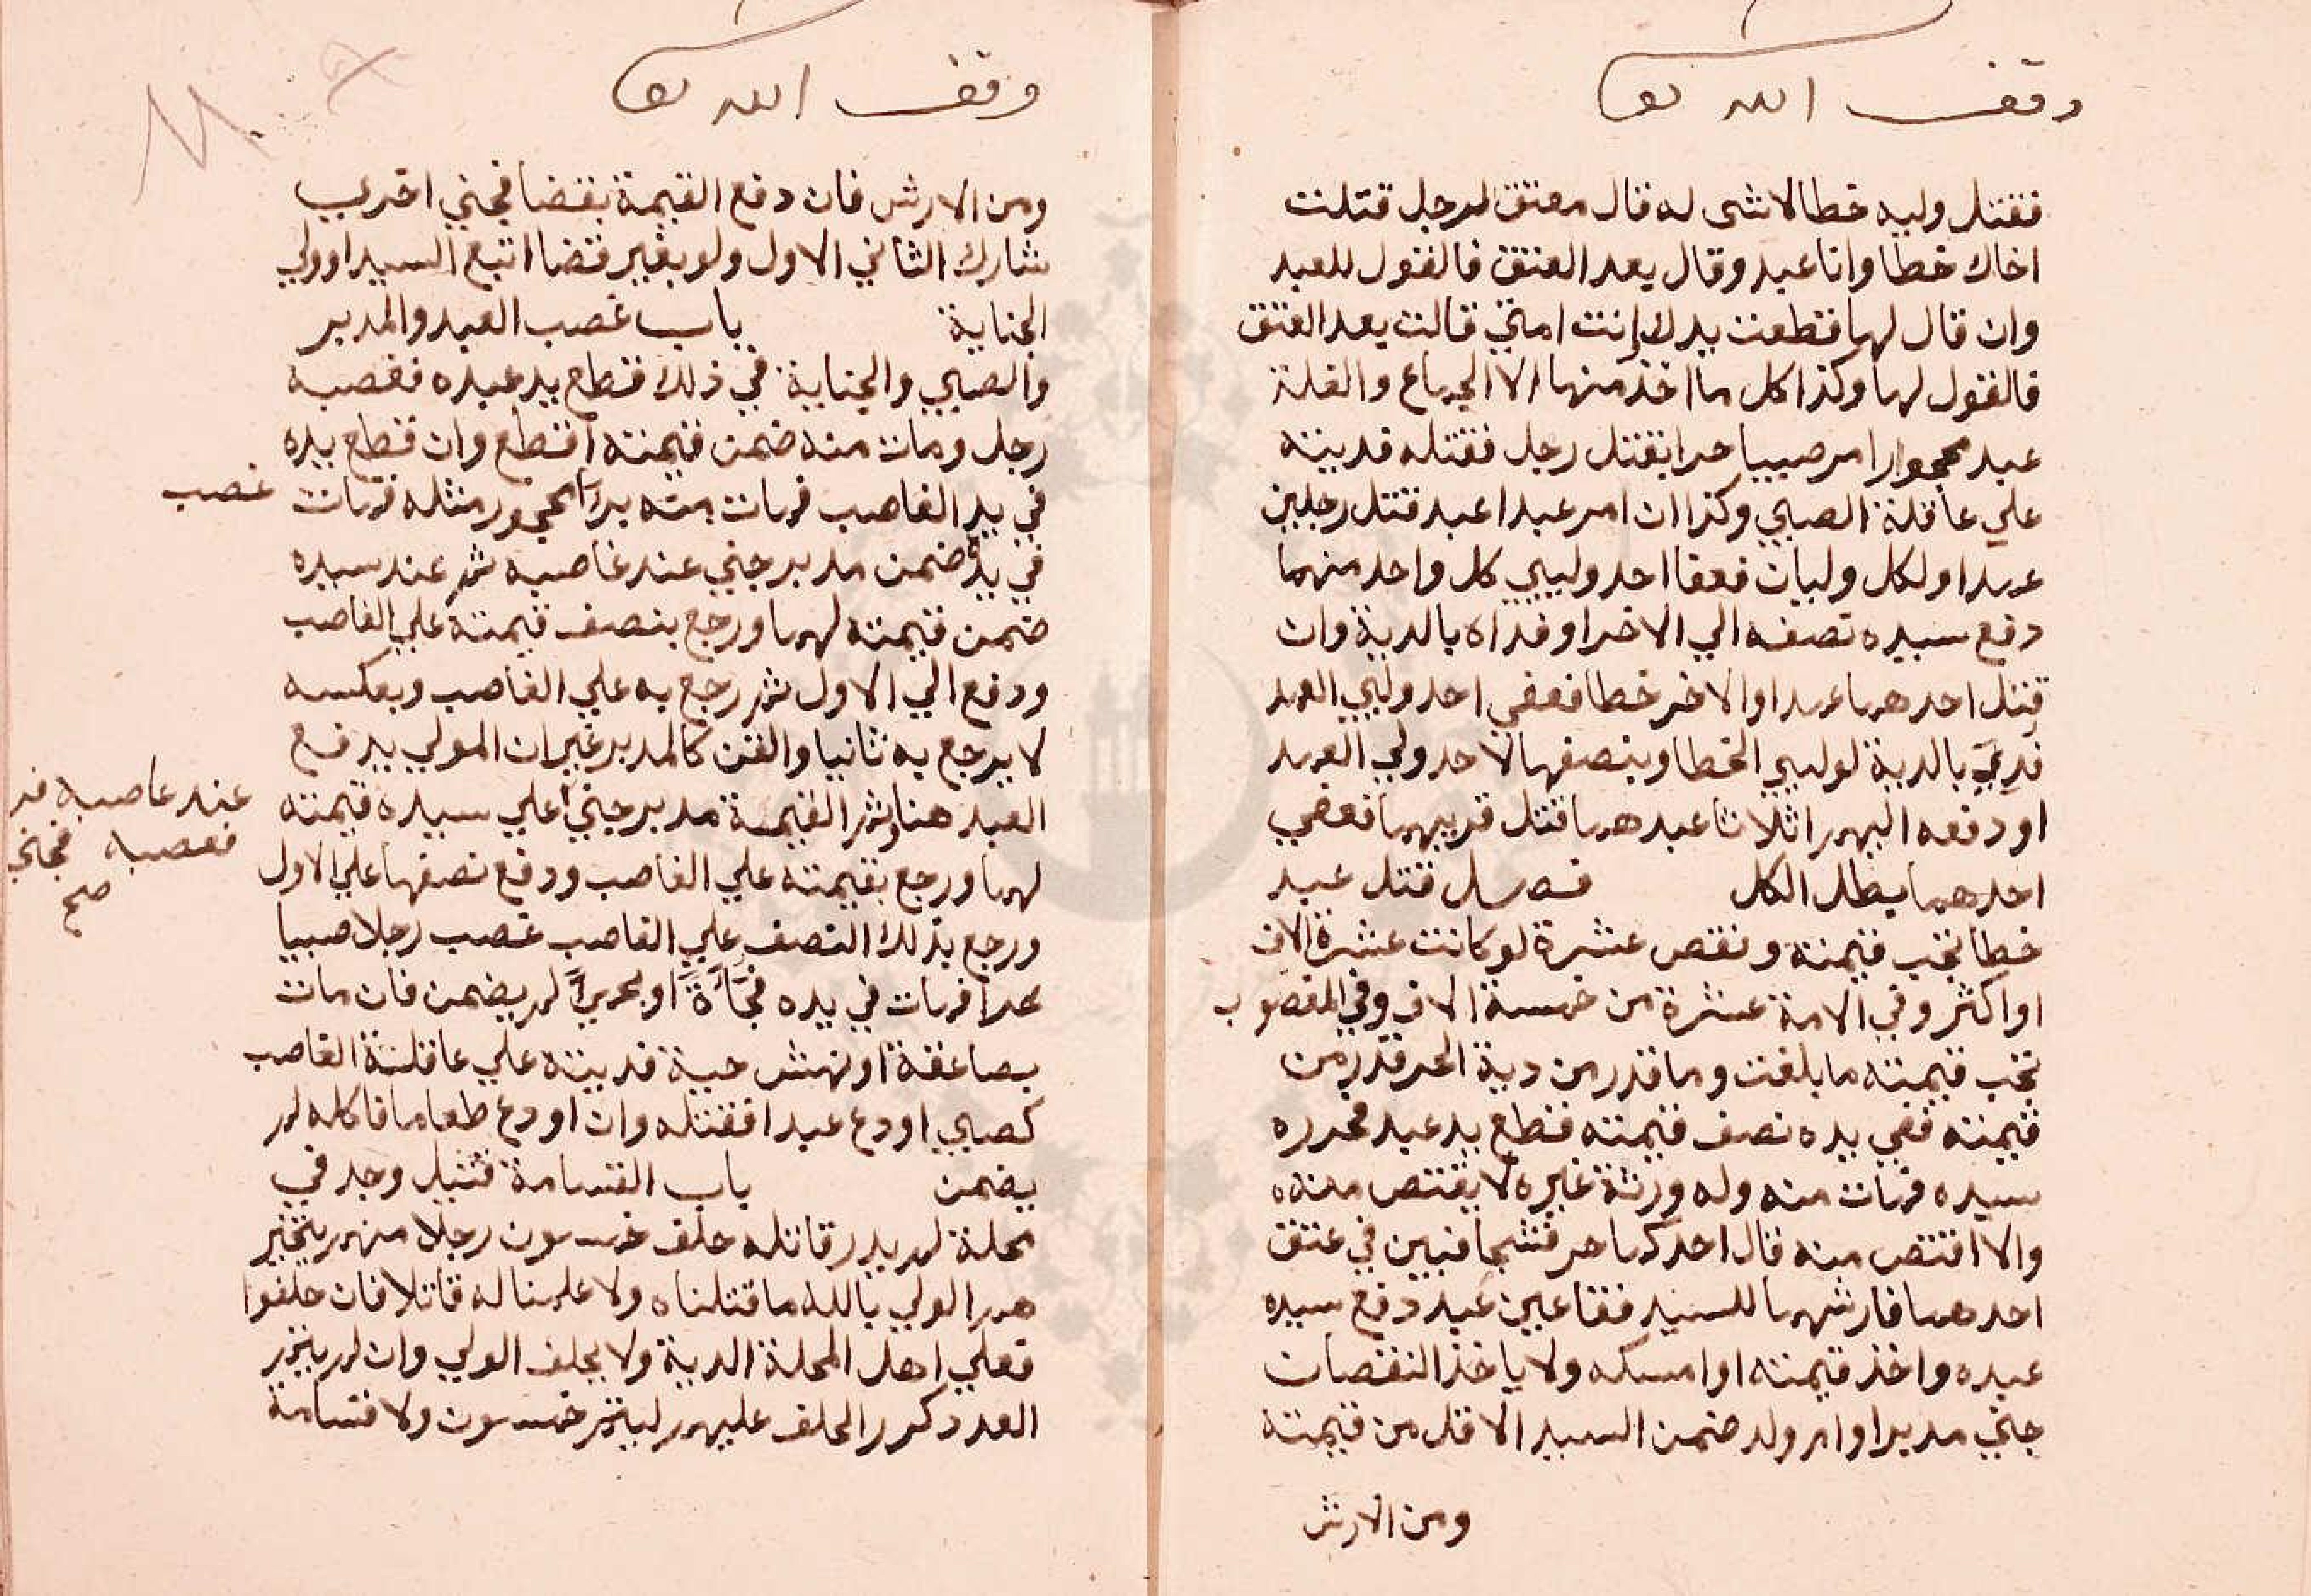 وقف الله تعا
فقتل وليه خطا لا شى له قال معتق لرجل قتلت
اخاك خطا وانا عبد وقال بعد العتق فالقول للعبد
وان قال لها قطعت يدك انت امتي قالت بعد العتق
فالقول لها وكذا كل ما اخذ منها الا الجماع والغلة
عبد محجور امر صبيا حرا بقتل رجل فقتله فديته
علي عاقلة الصبي وكذا ان امر عبدا عبد قتل رجلين
عمدا ولكل وليان فعفا احد وليي كل واحد منهما
دفع سيده نصفه الي الاخر او فداه بالدية وان
قتل احدهما عمدا والاخر خطا فعفي احد وليي العمد
فدي بالدية لوليي الخطا وبنصفها لاحد ولي العمد
او دفعه اليهم اثلاثا عبدهما قتل قريبهما فعفي
احدهما بطل الكل فصل قتل عبد
خطا تجب قيمته ونقص عشرة لو كانت عشرة الاف
او اكثر وفي الامة عشرة من خمسة الاف وفي المغصوب
تجب قيمته ما بلغت وما قدر من دية الحر قدر من
قيمته ففي يده نصف قيمته قطع يد عبد فحرره
سيده فمات منه وله ورثة غيره لا يقتص منه
والا اقتص منه قال احدكما حر فشجا فبين في عتق
احدهما فارشهما للسيد فقا عين عبد دفع سيده
عبده واخذ قيمته او امسكه ولا ياخذ النقصان
جني مدبر او ام ولد ضمن السيد الاقل من قيمته
ومن الارش
وقف الله تعا
ومن الارش فان دفع القيمة بقضا فجني اخري
شارك الثاني الاول ولو بغير قضا اتبع السيد او ولي
الجناية باب غصب العبد والمدبر
والصبي والجناية في ذلك قطع يد عبده فغصبه
رجل ومات منه ضمن قيمته اقطع وان قطع يده
في يد الغاصب فمات منه برا محجور مثله فمات
غصب
في يده ضمن مدبر جني عند غاصبه ثم عند سيده
ضمن قيمته لهما ورجع بنصف قيمته علي الغاصب
ودفع الي الاول ثم رجع به علي الغاصب وبعكسه
لا يرجع به ثانيا والقن كالمدبر غير ان المولي يدفع
العبد هنا وثم القيمة مدبر جني علي سيده قيمته
عند غاصبه فر
فغصبه فجني
صح
لهما ورجع بقيمته علي الغاصب ودفع نصفها علي الاول
ورجع بذلك النصف علي الغاصب غصب رجلا صبيا
حرا فمات في يده فجاءة او بحمي لم يضمن فان مات
بصاعقة او نهش حية فديته علي عاقلة الغاصب
كصبي اودع عبدا فقتله وان اودع طعاما فاكله لم
يضمن باب القسامة قتيل وجد في
محلة لم يدر قاتله حلف خمسون رجلا منهم يتخير
هم الولي بالله ما قتلناه ولا علمنا له قاتلا فان حلفوا
فعلي اهل المحلة الدية ولا يحلف الولي وان لم يتم
العدد كرر الحلف عليهم ليتم خمسون ولا قسامة